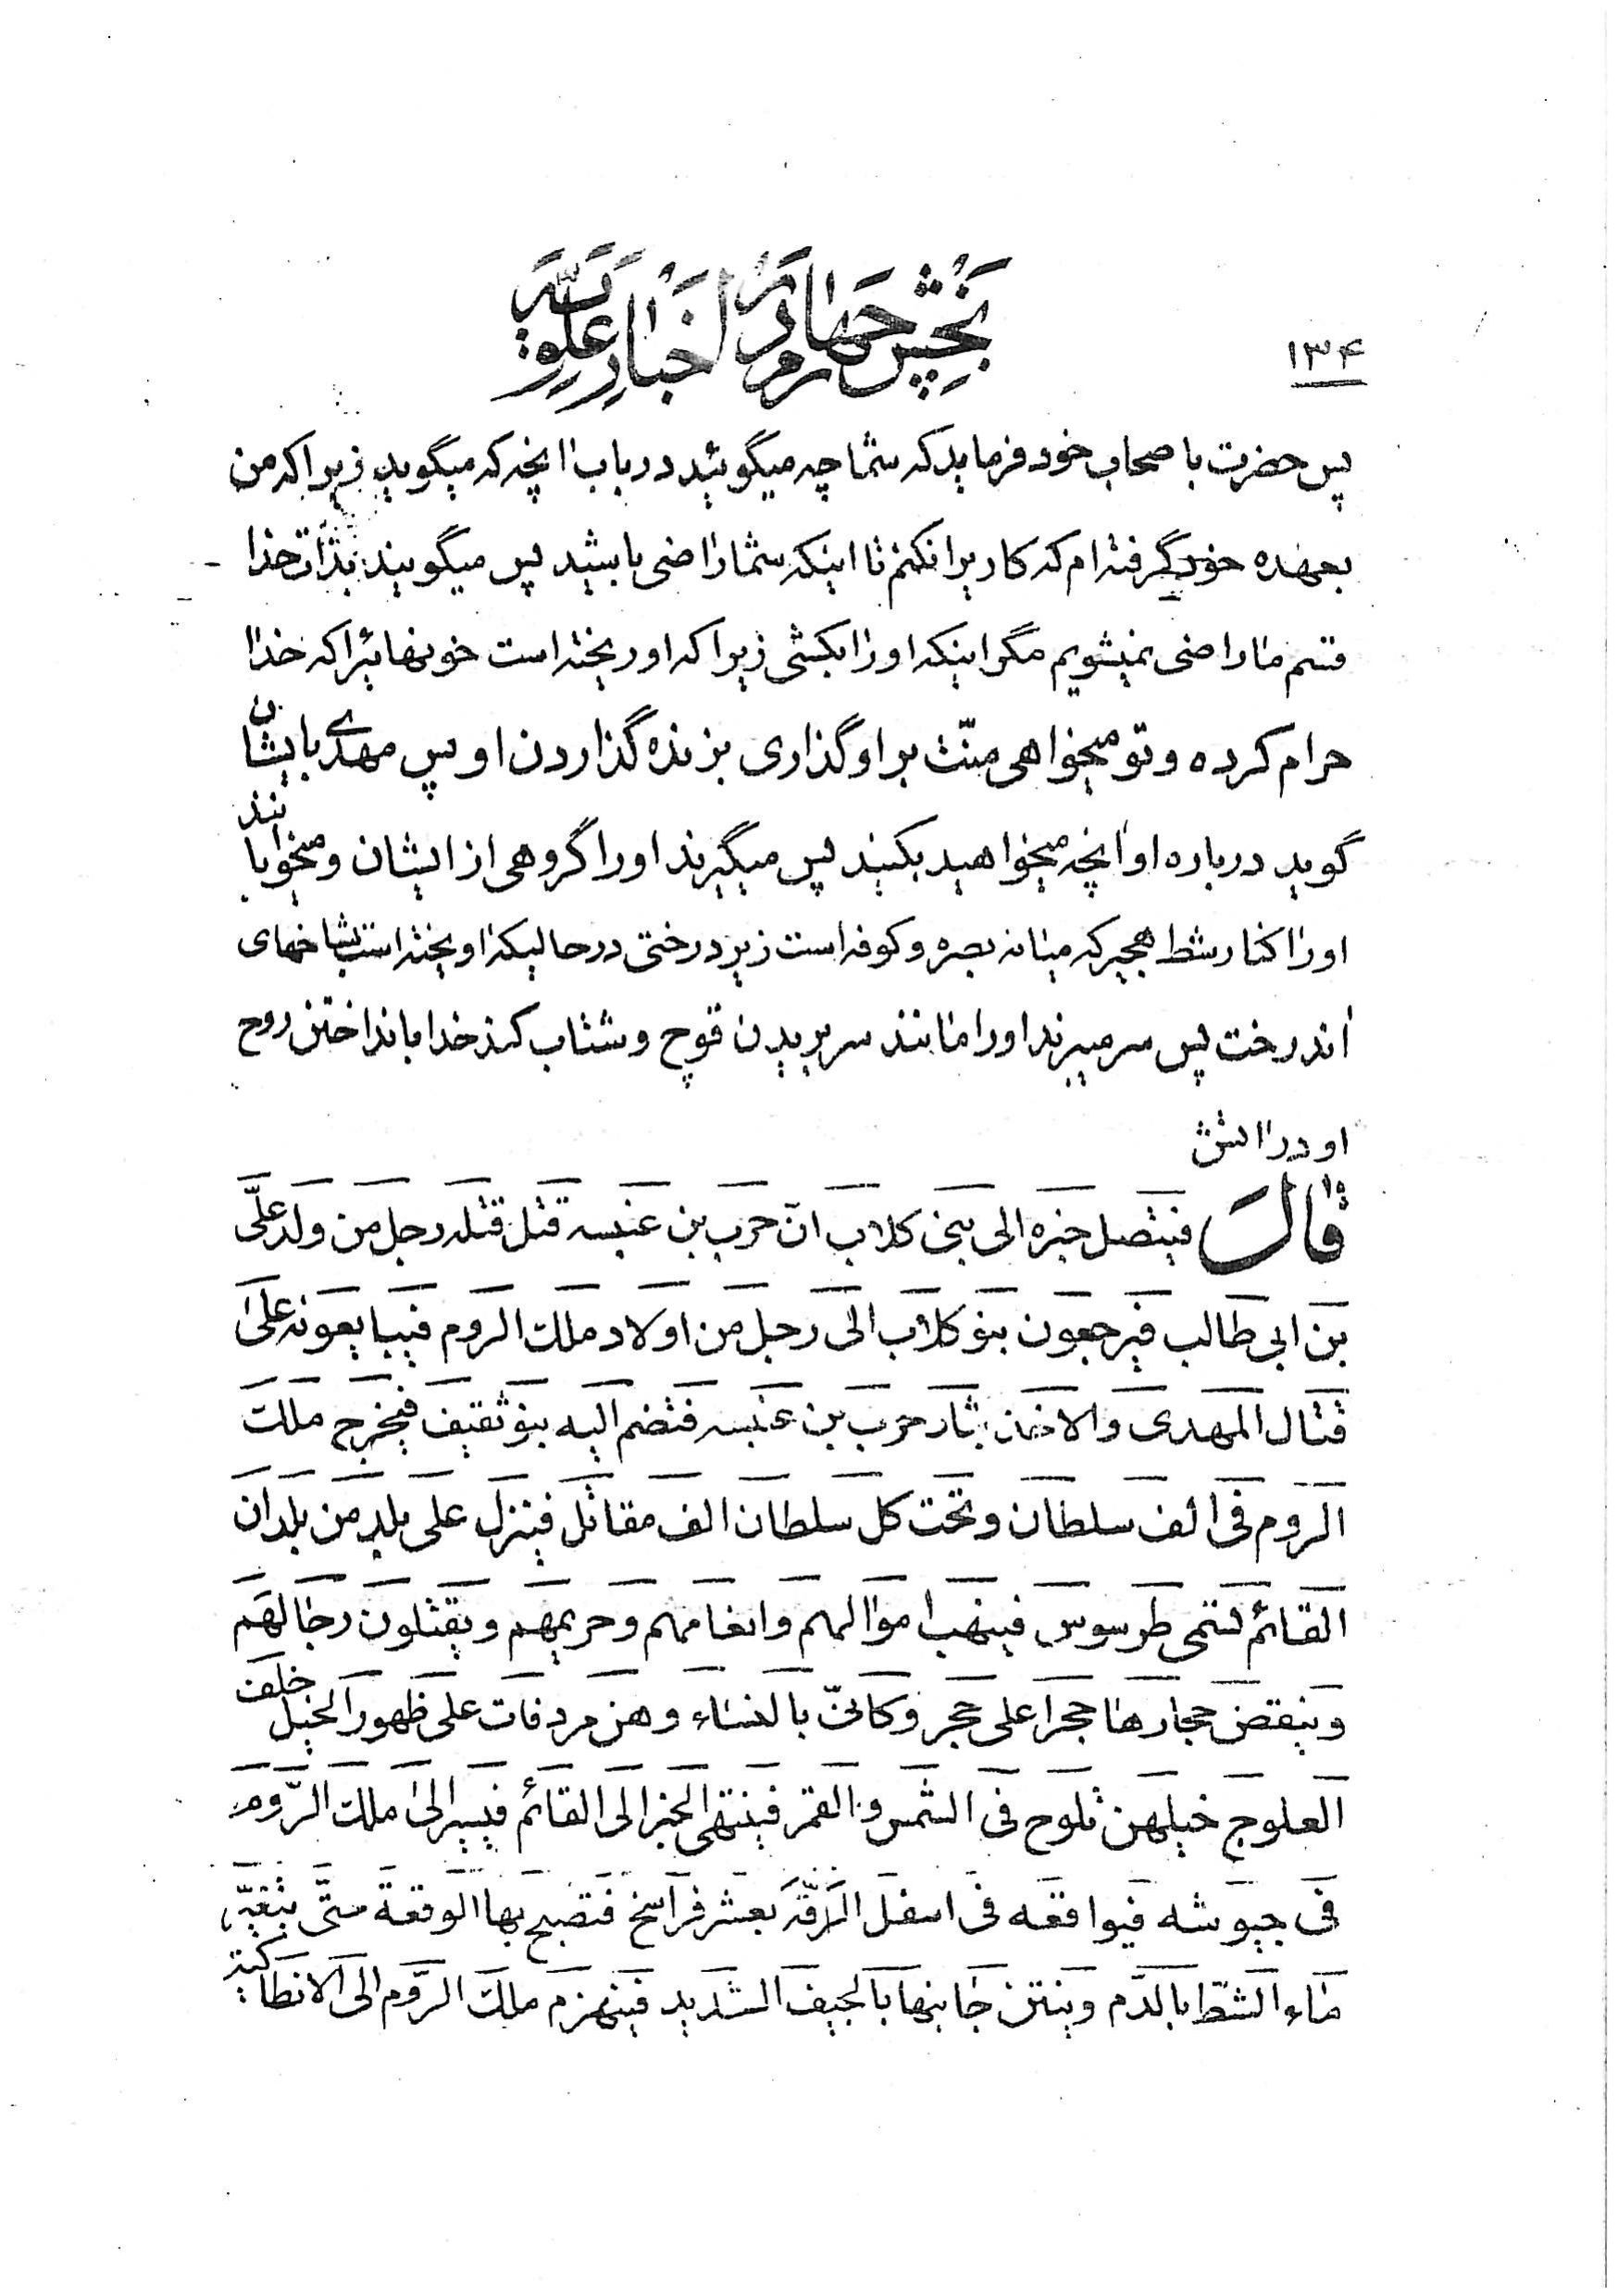 ۱۳۴
بخش چهارم در اخبار علویه
پس حضرت باصحاب خود فرماید که شما چه میگوئید در باب انچه که میگوید زیرا که من
بعهده خود گرفته ام که کاریرا نکنم تا اینکه شما راضی باشید پس میگویند بذات خدا
قسم ما راضی نمیشویم مگر اینکه او را بکشی زیرا که او ریخته است خونهائیرا که خدا
حرام کرده و تو میخواهی منّت بر او گذاری بزنده گذاردن او پس مهدی بایشان
گوید درباره او انچه میخواهید بکنید پس میگیرند او را گروهی از ایشان و میخوابانند
او را کنار شط هجیر که میانه بصره و کوفه است زیر درختی در حالیکه اویخته است شاخهای
اندرخت پس سر میبرند او را مانند سر بریدن قوچ و شتاب کند خدا بانداختن روح
او در اتش
قال فیتصل خبره الی بنی کلاب ان حرب بن عنبسه قتل قتله رجل من ولد علیّ
بن ابی طالب فیرجعون بنو کلاب الی رجل من اولاد ملک الروم فیبایعونه علی
قتال المهدی والاخذ بثار حرب بن عنبسه فتضم الیه بنو ثقیف فیخرج ملک
الروم فی الف سلطان وتحت کل سلطان الف مقاتل فینزل علی بلد من بلدان
القائم لتمی طرسوس فینهب اموالهم وانعامهم وحریمهم ویقتلون رجالهم
وینقض حجارها حجرا علی حجر وکانّی بالنساء وهن مردفات علی ظهور الخیل خلف
العلوج خیلهن تلوح فی الشمس والقمر فینتهی الخبر الی القائم فیسیر الی ملک الرّوم
فی جیوشه فیواقعه فی اسفل الرّقة بعشر فراسخ فتصبح بها الوقعة حتّی یتغیّر
ماء الشطّ بالدّم وینتن جانبها بالجیف الشدید فینهزم ملک الرّوم الی الانطاکیة